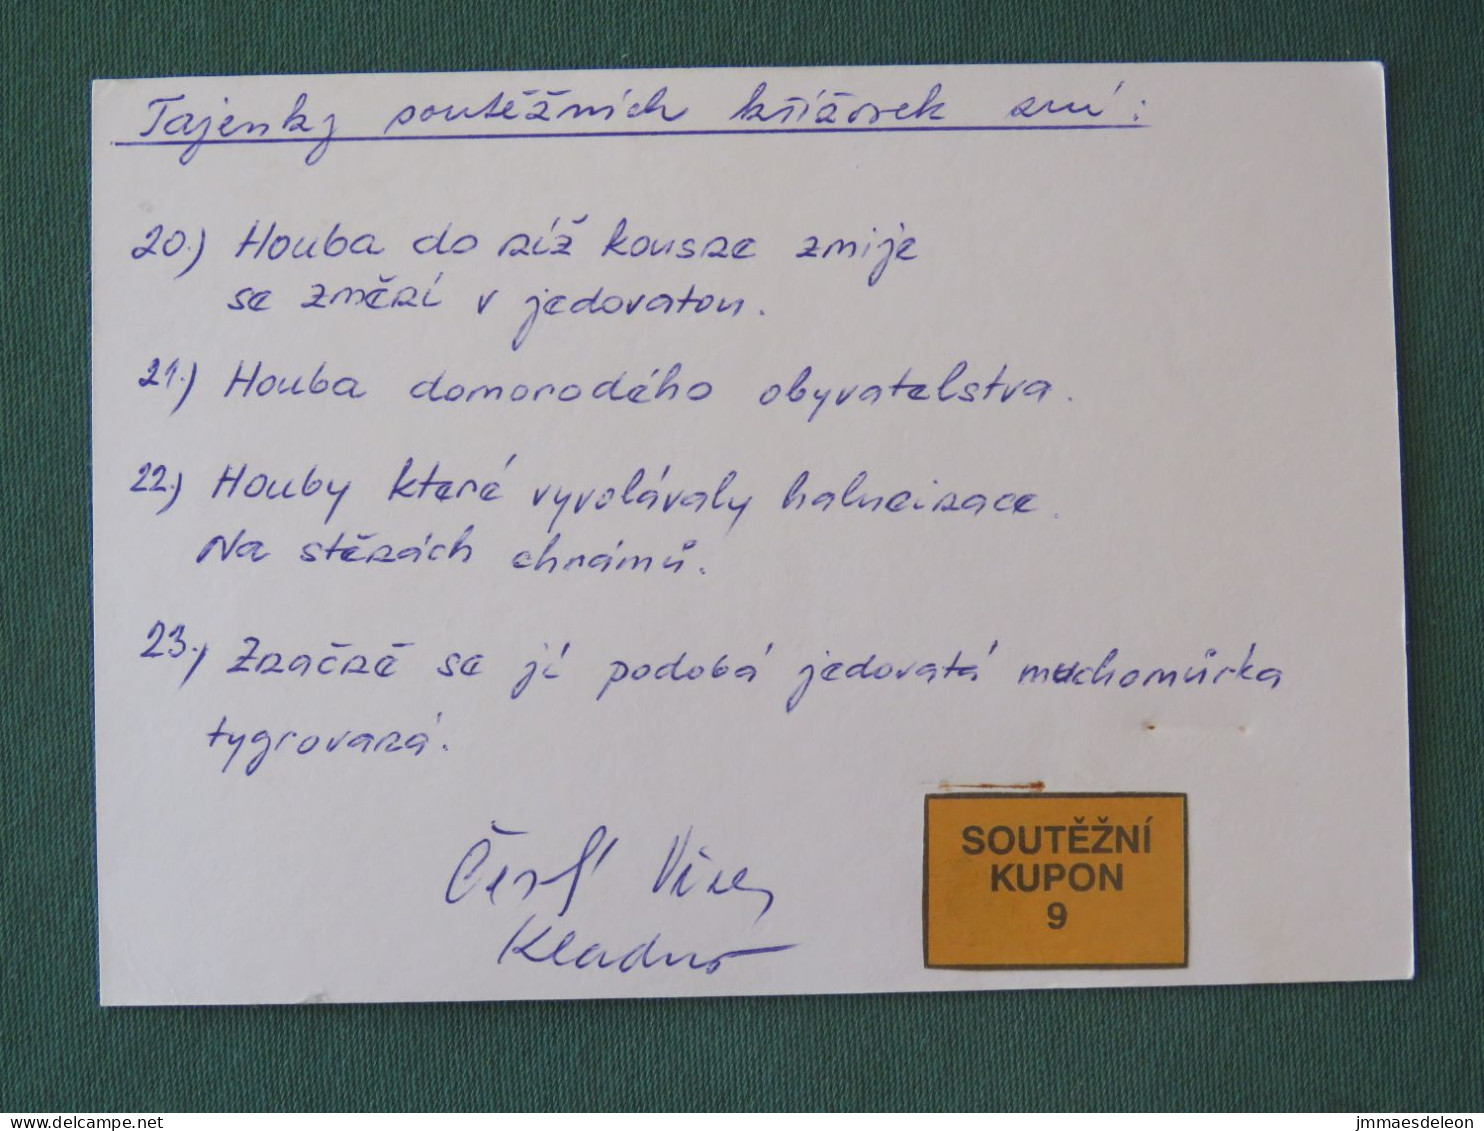 Tajenky soutěžních křížovek zní:
20.) Houba do níž kousne zmije
se změní v jedovatou.
21.) Houba domorodého obyvatelstva.
22.) Houby které vyvolávaly halucinace.
Na stěnách chrámů.
23.) Značně se jí podobá jedovatá muchomůrka
tygrovaná.
Kladno
SOUTĚŽNÍ
KUPON
9
www.delcampe.net
jmmaesdeleon